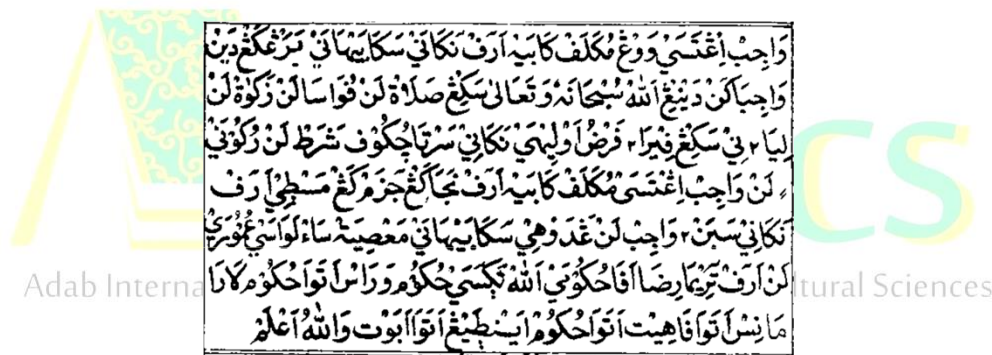 وَاجِبْ اِڠَتَسَيْ وَوْڠْ مُكَلَّفْ كَابَيْه اَرَفْ نَكَانِيْ سَكَابَيْهَانَيْ ڤَرَڠْكَڠْ دَيْنْ
وَاجِبَاكَنْ دَيْنَيْڠْ اَللّٰهْ سُبْحَانَهُ وَتَعَالٰى سَكِڠْ صَلَاةْ لَنْ ڤُوَاسَا لَنْ زَكَوٰةْ لَنْ
لِيَا٢نَيْ سَكِڠْ ڤِيْرَا٢ فَرْضُ اَوْلَيْهَيْ نَكَانِيْ سَرْتَا چُكُوْڤْ شَرَطْ لَنْ رُكُوْنَيْ
لَنْ وَاجِبْ اِڠَتَسَيْ مُكَلَّفْ كَابَيْه اَرَفْ
نَكَانِيْ سَبَنْ٢ وَاجِبْ لَنْ ڠَدَوْهِيْ سَكَابَيْهَانَيْ مَعْصِيَةْ
لَنْ اَرَفْ تَرِيْمَا رِضَا اَڤَا حُكُوْمَيْ اَللّٰهْ تَڮَسَيْ حُكُوْمْ وَرَاسْ اَتَوَا حُكُوْمْ لَارَا
مَانِسْ اَتَوَا ڤَاهِيْتْ اَتَوَا حُكُوْمْ اَيْنْطَيْڠْ اَتَوَا اَبَوْتْ وَاللّٰهُ اَعْلَمْ
Adab Interna
ltural Sciences
CS